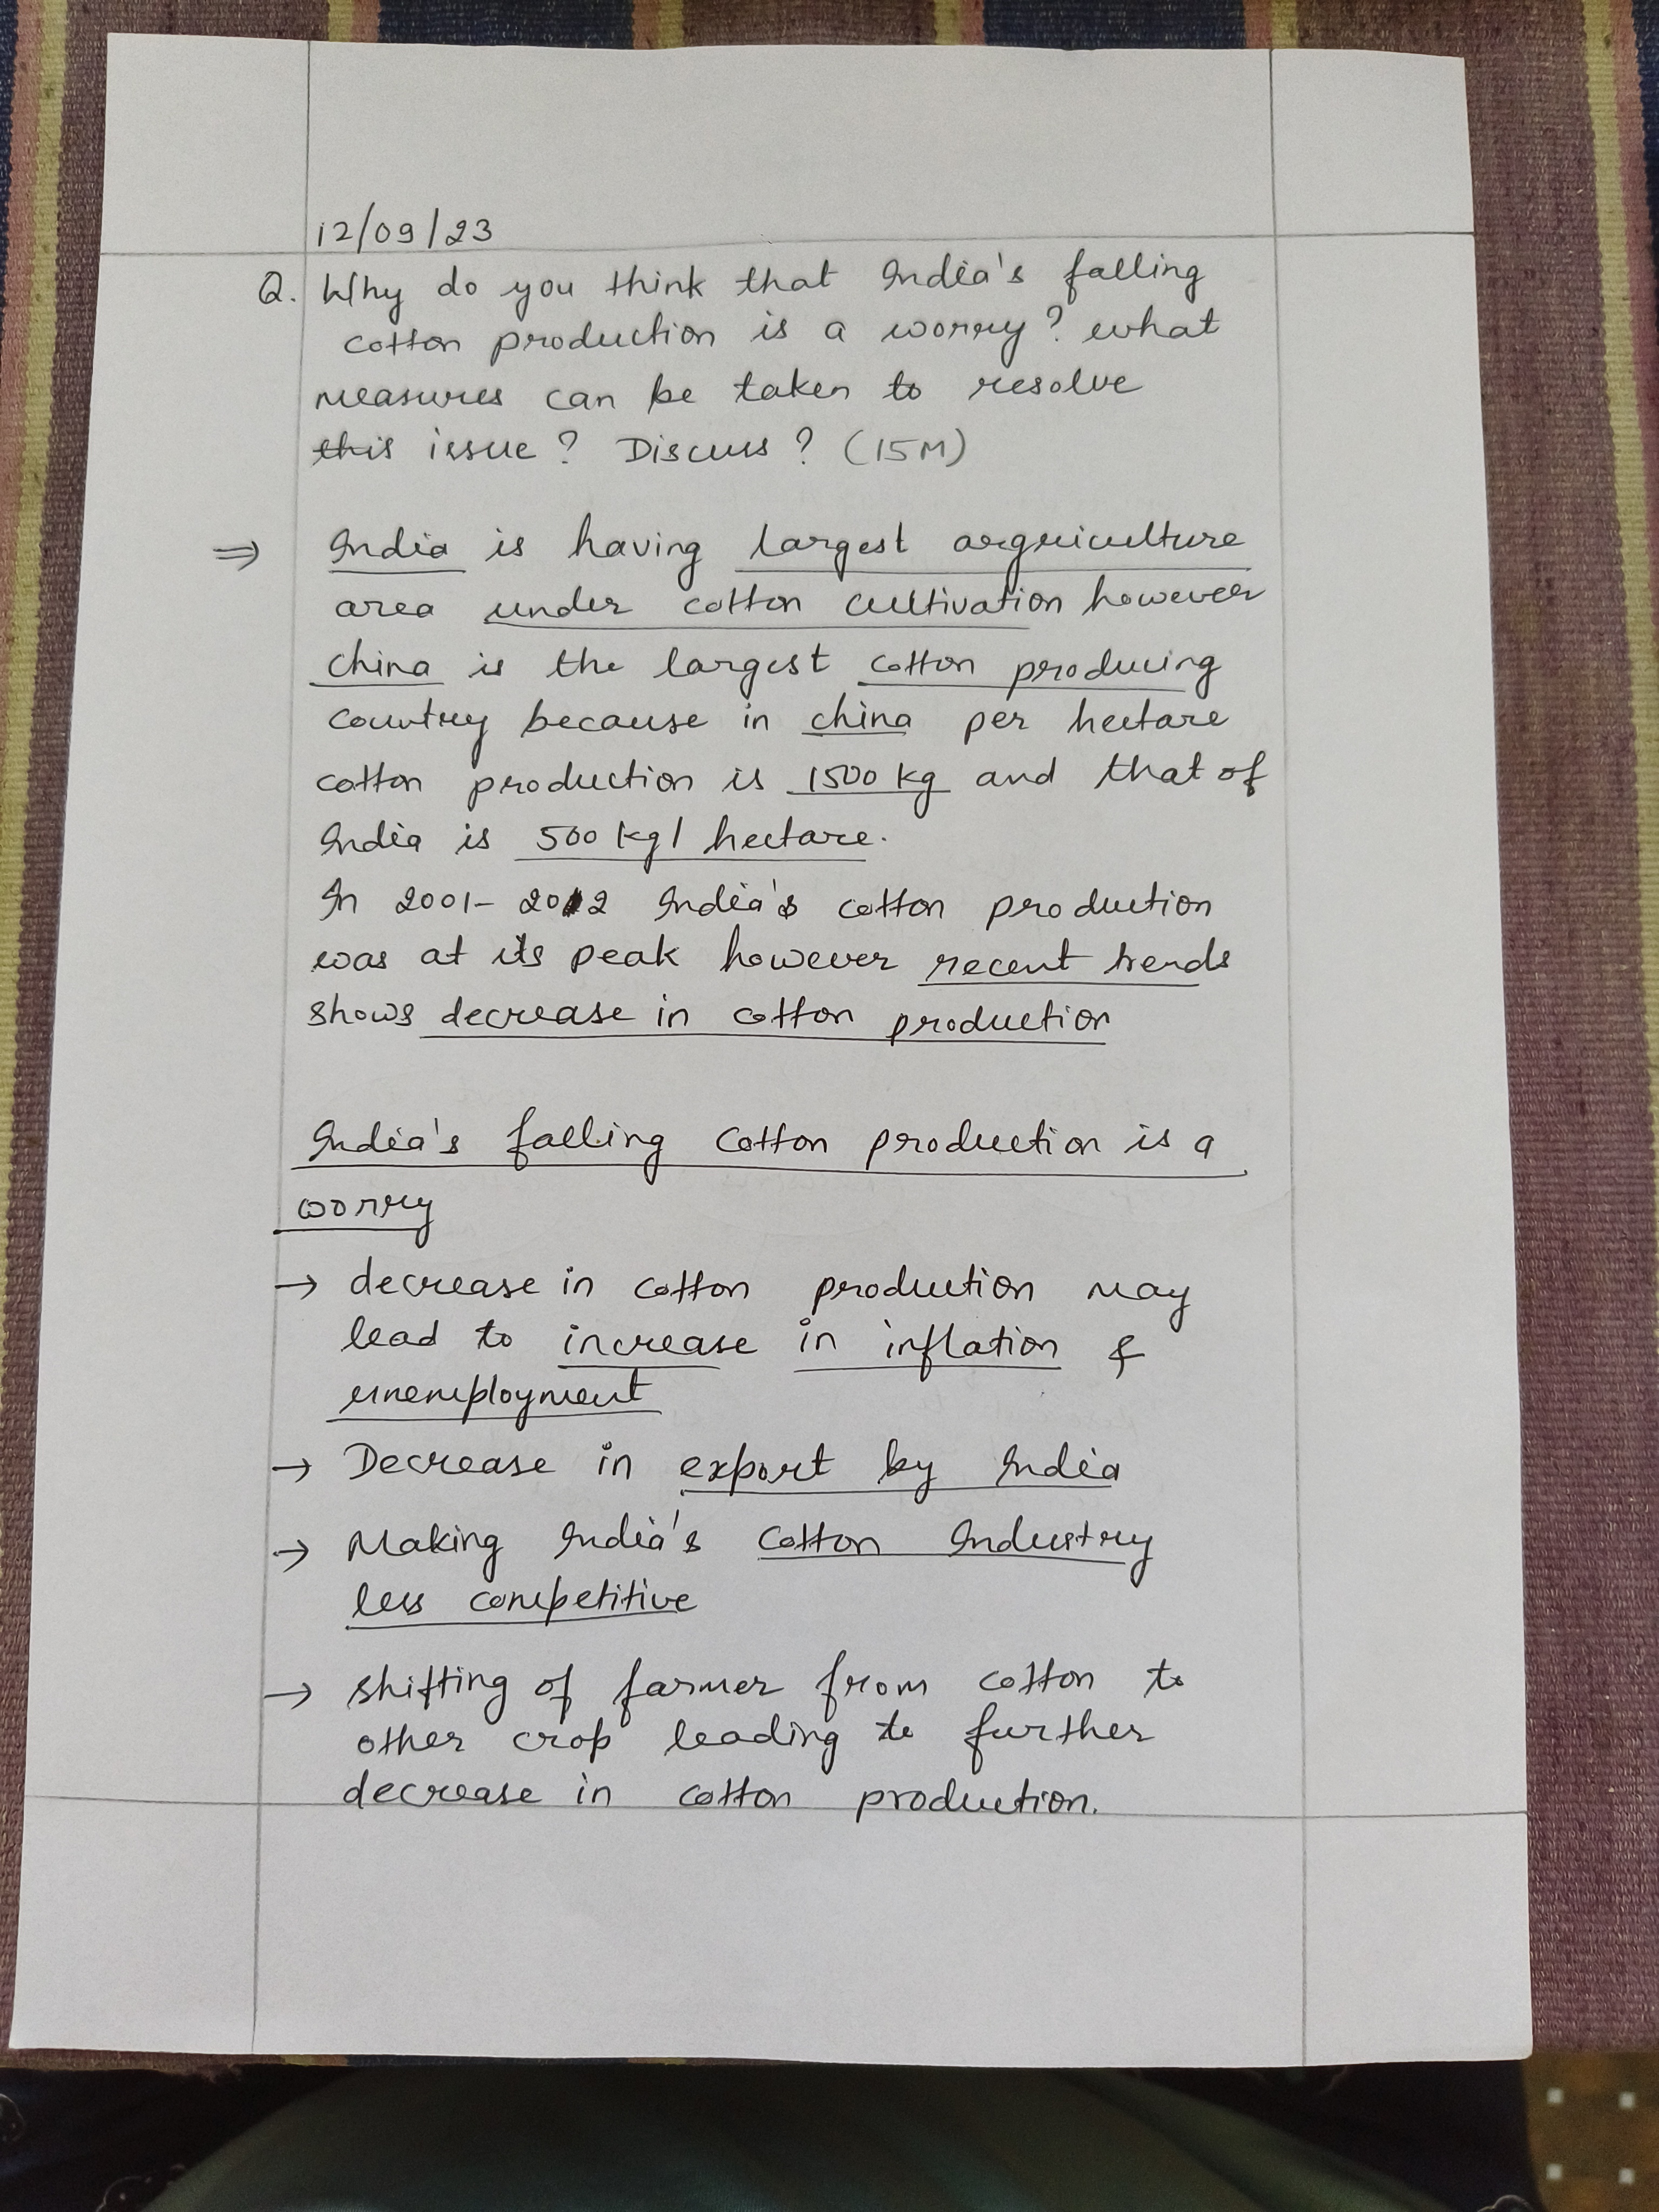 12/09/23
Q. Why do you think that India's falling
cotton production is a worry? what
measures can be taken to resolve
this issue? Discuss? (15M)
⇒ India is having largest argriculture
area under cotton cultivation however
china is the largest cotton producing
country because in china per hectare
cotton production is 1500 kg and that of
India is 500 kg/ hectare.
In 2001-2012 India's cotton production
was at its peak however recent trends
shows decrease in cotton production
India's falling cotton production is a
worry
→ decrease in cotton production may
lead to increase in inflation &
unemployment
→ Decrease in export by India
→ Making India's cotton Industry
less competitive
→ shifting of farmer from cotton to
other crop leading to further
decrease in cotton production.